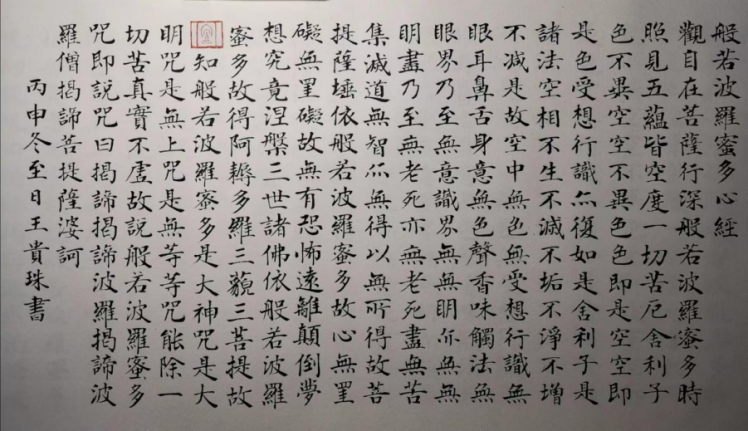 般若波羅蜜多心經
觀自在菩薩行深般若波羅蜜多時
照見五蘊皆空度一切苦厄舍利子
色不異空空不異色色即是空空即
是色受想行識亦復如是舍利子是
諸法空相不生不滅不垢不淨不增
不减是故空中無色無受想行識無
眼耳鼻舌身意無色聲香味觸法無
眼界乃至無意識界無無明亦無無
明盡乃至無老死亦無老死盡無苦
集滅道無智亦無得以無所得故菩
提薩埵依般若波羅蜜多故心無罣
礙無罣礙故無有恐怖遠離顛倒夢
想究竟涅槃三世諸佛依般若波羅
蜜多故得阿耨多羅三藐三菩提故
知般若波羅蜜多是大神咒是大
明咒是無上咒是無等等咒能除一
切苦真實不虛故說般若波羅蜜多
咒即說咒曰揭諦揭諦波羅揭諦波
羅僧揭諦菩提薩婆訶
丙申冬至日王貴珠書